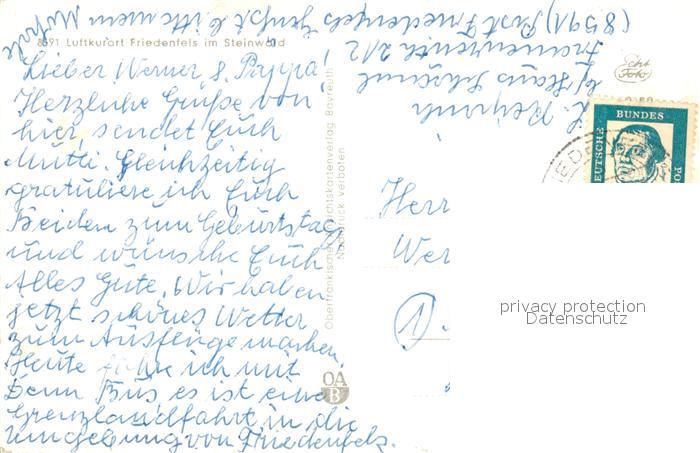 8591 Luftkurort Friedenfels im Steinwald
Lieber Werner u. Pappa!
Herzliche Grüße von
hier, sendet Euch
Mutti. Gleichzeitig
gratuliere ich Euch
Beiden zum Geburtstag
und wünsche Euch
Alles Gute. Wir haben
jetzt schönes Wetter
zum Ausflüge machen.
Heute fahre ich mit
dem Bus, es ist eine
Grenzlandfahrt in die
Umgebung von Friedenfels.
(8591) Post Friedenfels
b/ Hans
Oberfränkische Ansichtskartenverlag Bayreuth
Nachdruck verboten
OA
B
Echt
Foto
DEUTSCHE
BUNDES
PO
Herr
Wer
privacy protection
Datenschutz